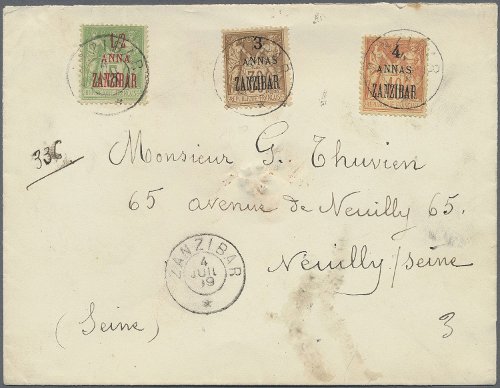 1/2
ANNA
ZANZIBAR
3
ANNAS
ZANZIBAR
4
ANNAS
ZANZIBAR
336
Monsieur G. Thuvien
65 avenue de Neuilly 65.
Neuilly/Seine
ZANZIBAR
4
JUIL
99
(Seine)
3